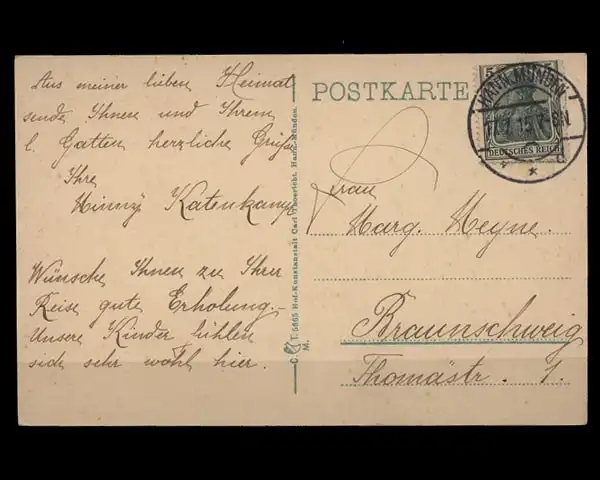 Aus meiner lieben Heimat
sende Ihnen und Ihrem
l. Gatten herzliche Grüße
Ihre
Minny Katenkamp
Wünsche Ihnen zu Ihrer
Reise gute Erholung.
Unsere Kinder fühlen
sich sehr wohl hier.
C. T. 5865 Hof-Kunstanstalt Carl Thoericht, Hann.-Münden.
M.
POSTKARTE
5
HANN. MÜNDEN
15.7-8N
DEUTSCHES REICH
Frau
Marg. Meyne.
Braunschweig
Thomästr. 1.